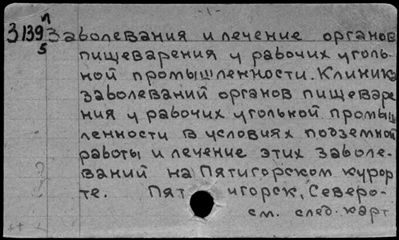 - 1 -
п
3139 Заболевания и лечение органов
5 пищеварения у рабочих уголь-
ной промышленности. Клиника
заболеваний органов пищеваре
ния у рабочих угольной промыш
ленности в условиях подземной
работы и лечение этих заболе-
ваний на Пятигорском курор
те. Пят игорск, Северо-
см. след. карт